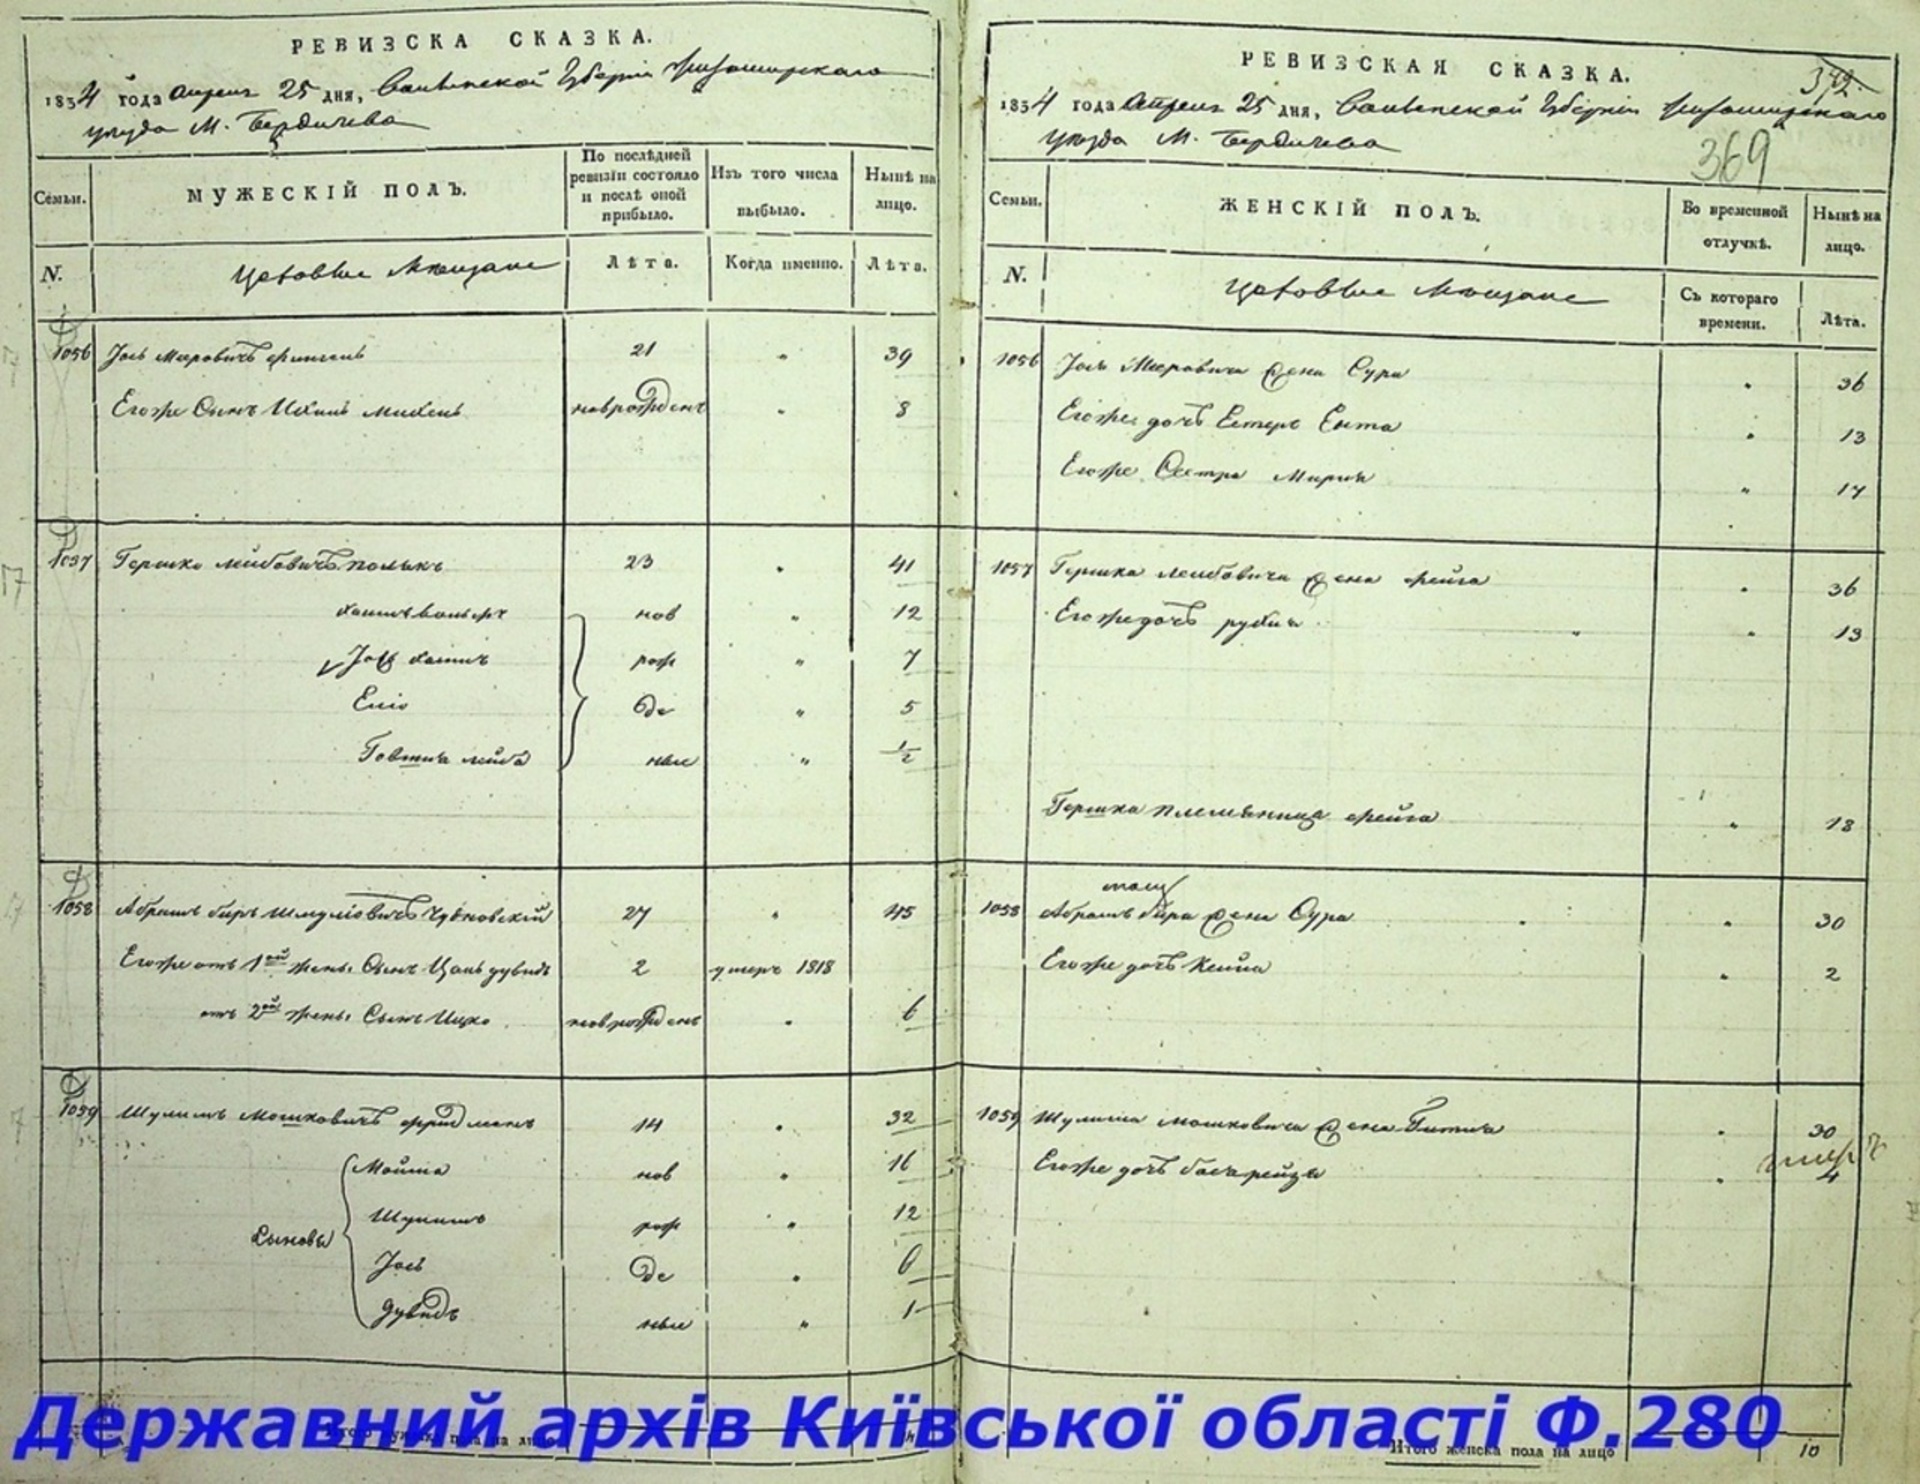 РЕВИЗСКА СКАЗКА.
1834 года апреля 25 дня, Волынской Губернии Житомирскаго
уезда М. Бердичева
Семьи.
МУЖЕСКІЙ ПОЛЪ.
По послѣдней ревизіи состояло и послѣ оной прибыло.
Изъ того числа выбыло.
Нынѣ на лицо.
N.
Цеховые Мещане
Лѣта.
Когда именно.
Лѣта.
1056 Іось Мееровичъ 21 " 39
Егоже Сынъ новрожденъ " 8
1057 Гершко Лейбовичъ 23 " 41
нов " 12
рож " 7
Еліо де " 5
лейба ные " 1/2
1058 Абрамъ беръ Шмуліовичъ Чудновскій 27 " 45
Егоже отъ 1ой жены Сынъ дувидъ 2 умеръ 1818
отъ 2ой жены Сынъ Ицко новрожденъ " 6
1059 Шулимъ Мошковичъ 14 " 32
Сыновья
нов " 16
рож " 12
Іось де " 6
Дувидъ ные " 1
Итого мужеска пола на лицо
РЕВИЗСКАЯ СКАЗКА.
372
1834 года Апреля 25 дня, Волынской Губернии Житомирскаго
уезда М. Бердичева
369
Семьи.
ЖЕНСКІЙ ПОЛЪ.
Во временной отлучкѣ.
Нынѣ на лицо.
N.
Цеховые Мещане
Съ котораго времени.
Лѣта.
1056 Іося Мееровича жена Сура " 36
Егоже дочь Естеръ Ента " 13
Егоже Сестра Мирия " 17
1057 Гершка Лейбовича жена Фейга " 36
Егоже дочь рухля " 13
Гершка племянница Фейга " 18
1058 Абрамъ бера жена Сура " 30
Егоже дочь " 2
1059 Шулима Мошковича жена Гитля " 30
Егоже дочь бася рейзя " 4
Итого женска пола на лицо 10
Державний архів Київської області Ф.280